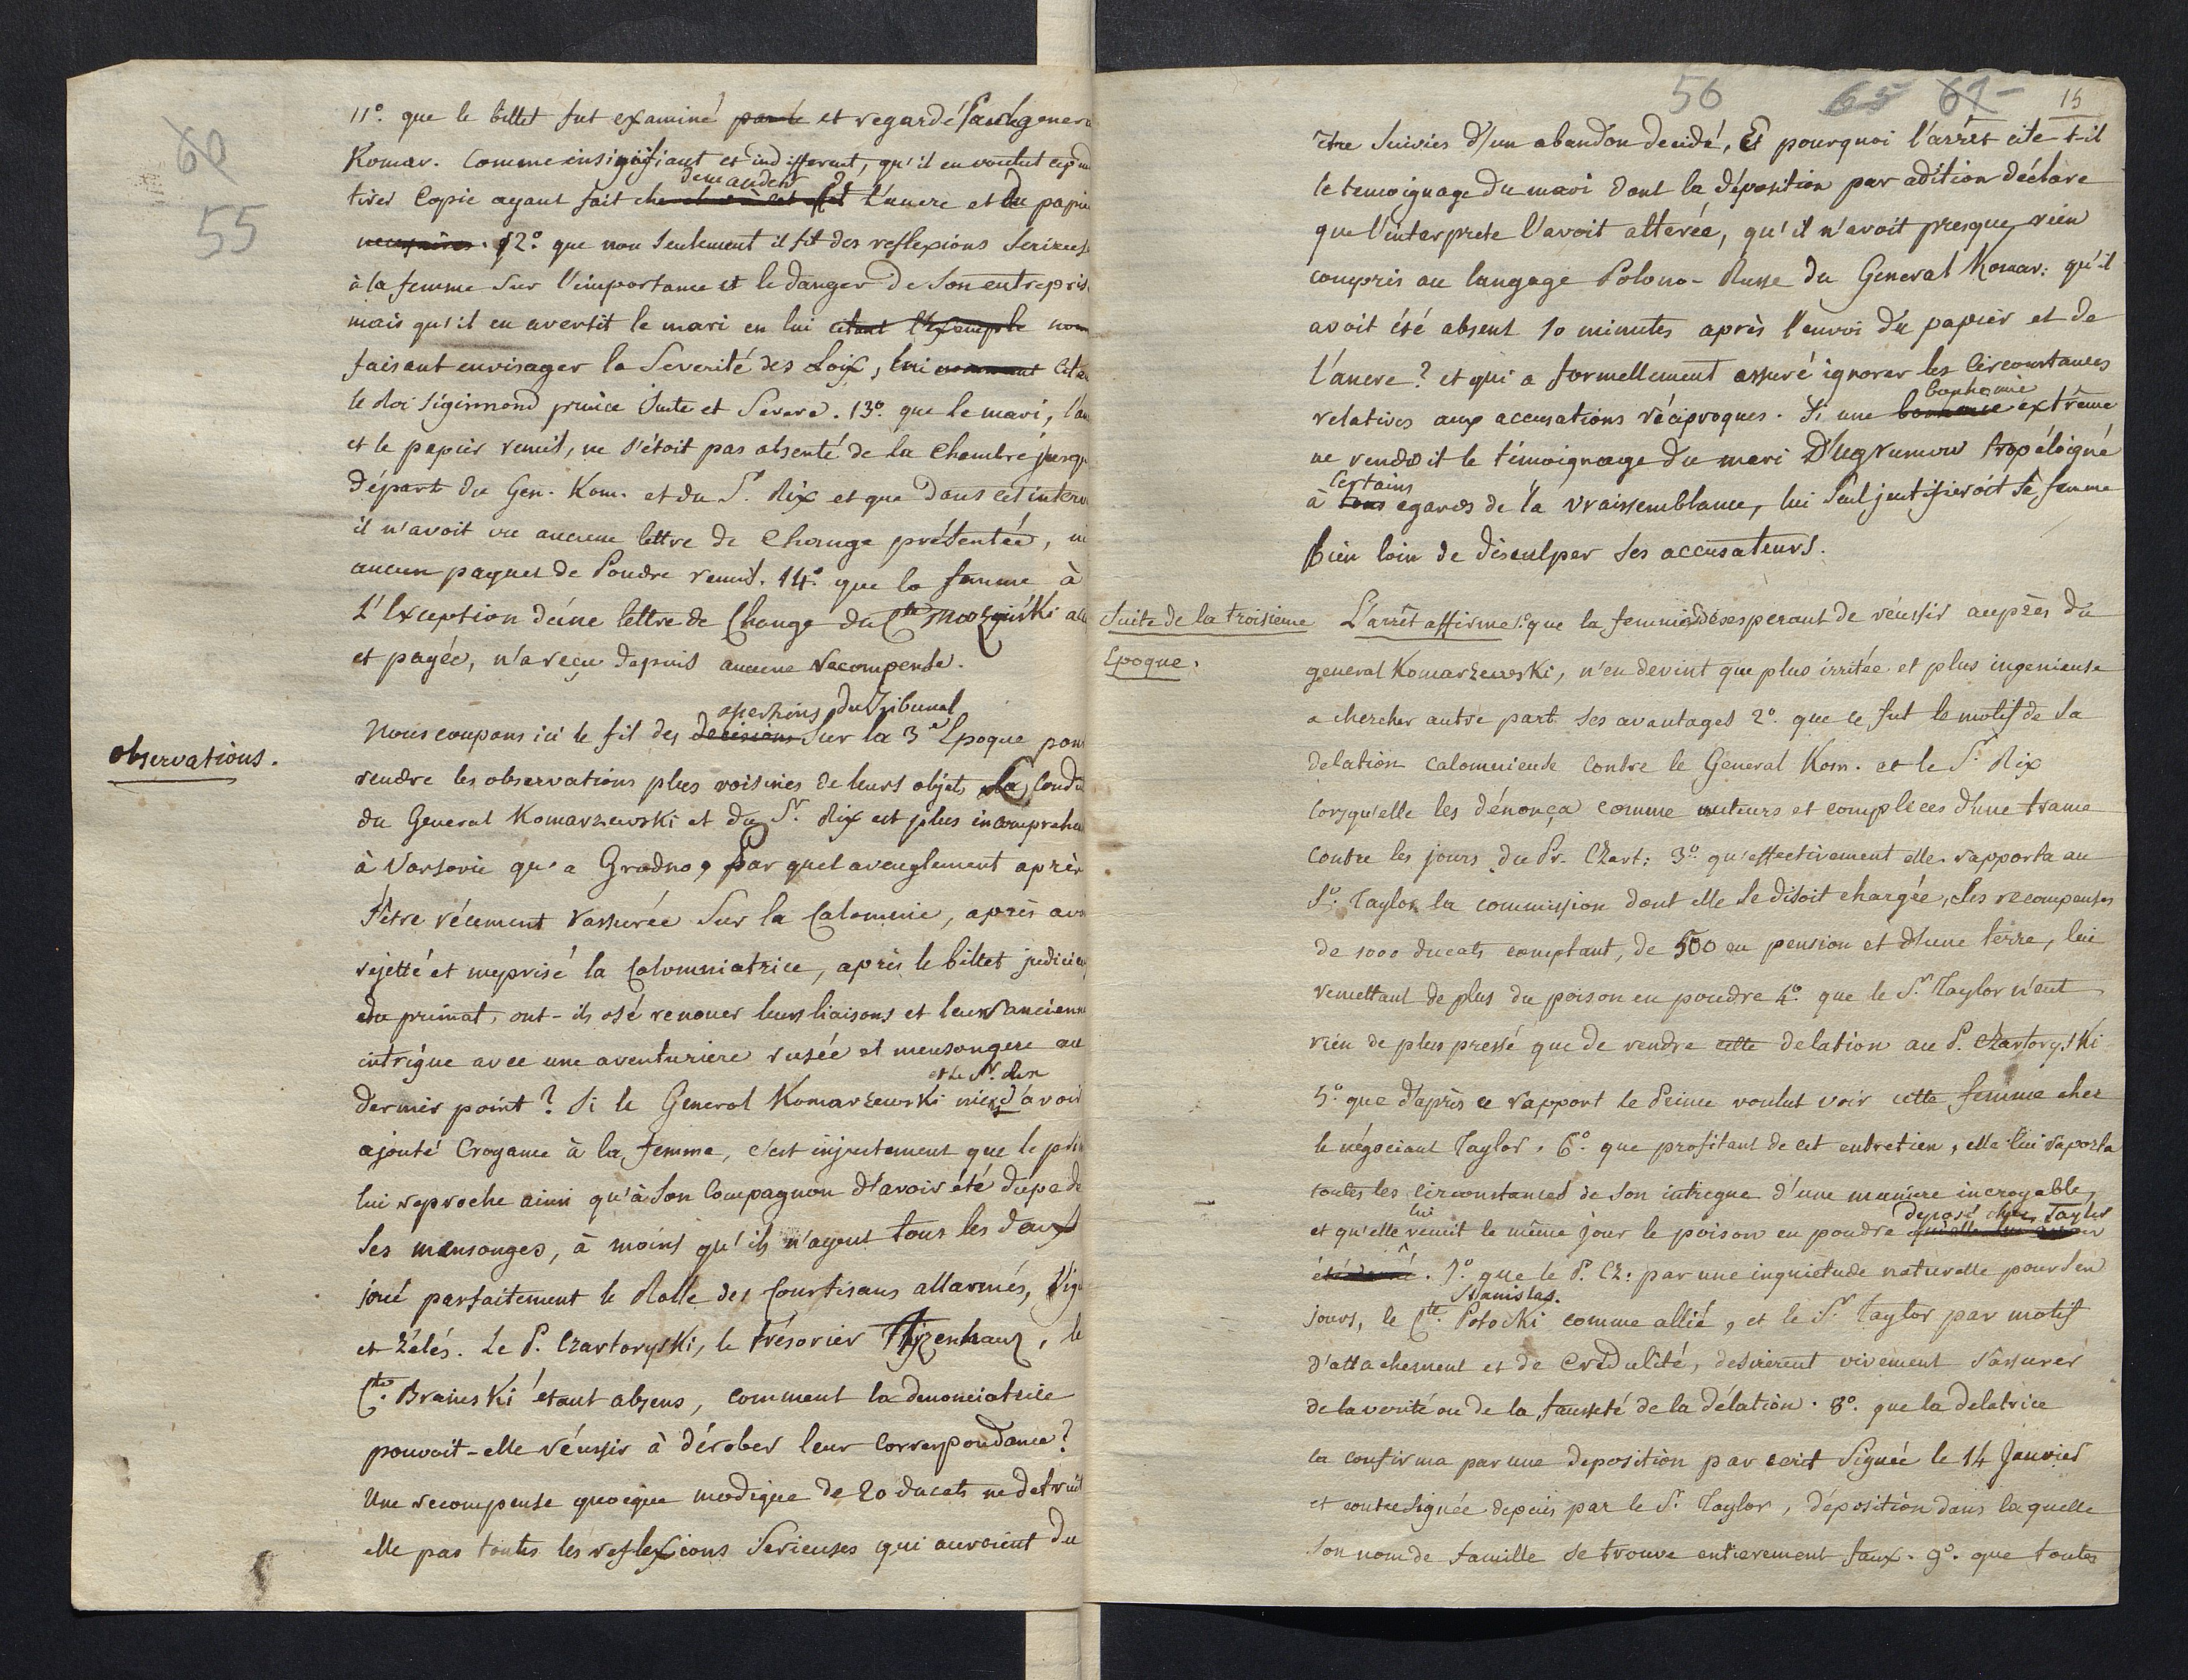 60
55
11º. que le billet fut examiné par le et regardé par le genera
Komar. comme insignifiant et indifferent, qu'il en voulut cepend
demander
tirer Copie ayant fait l'ancre et du papier
necessaires. 12º. que non seulement il fit des reflexions serieuse
à la femme sur l'importance et le danger de son entrepris
mais qu'il en avertit le mari en lui citant l'exemple non
faisant envisager la Severité des Loix, lui nommant cita
le Roi Sigismond prince Juste et Severe. 13º. que le mari, l'an
et le papier remis, ne s'étoit pas absenté de la Chambre jusqu
départ du Gen. Kom. et du Sr. Rix et que dans cet interv
il n'avoit vu aucune lettre de Change présentée, ni
aucun paquet de Poudre remis. 14º. que la femme à
L'Exception d'une lettre de Change du Cte Moszyński
et payée, n'a reçu depuis aucune recompense.
assertions du Tribunal
observations.
Nous coupons ici le fil des decisions sur la 3e Epoque pour
rendre les observations plus voisines de leurs objets La Condu
du General Komarzewski et du Sr. Rix est plus incomprehe
à Varsovie qu'a Grodno, Par quel aveuglement après
s'être récement rassurée sur la Calomnie, après avo
rejetté et meprisé la Calomniatrice, après le billet judicieu
du primat, ont-ils osé renouer leurs liaisons et leurs ancienn
intrigue avec une aventuriere rusée et mensongere au
et le Sr. Rix
dernier point? Si le General Komarzewski nient d'avoir
ajouté Croyance à la femme, c'est injustement que le prin
lui reproche ainsi qu'à son Compagnon d'avoir été dupe de
ses mensonges, à moins qu'ils n'ayent tous les deux
joué parfaitement le Rolle des Courtisans allarmés, Vigi
et zélés. Le P. Czartoryski, le trésorier Tyzenhauz, le
Cte. Braneski étant absens, comment la denonciatrice
pouvoit-elle réussir à dérober leur Correspondance?
Une recompense quoique modique de 20 ducats ne detruit
elle pas toutes les reflexions serieuses qui auroient du
56 65 61 15
être suivies d'un abandon decidé, Et pourquoi l'arrêt cite t-il
le temoignage du mari dont la déposition par adition déclare
que l'interprete l'avoit alterée, qu'il n'avoit presque rien
compris au langage Polono-Russe du General Komar: qu'il
avoit été absent 10 minutes après l'envoi du papier et de
l'ancre? et qui a formellement assuré ignorer les circonstances
bonhomie
relatives aux accusations réciproques. Si une extrême
ne rendoit le témoignage du mari D'ugrumow trop éloigné
certains
à tous egards de la vraissemblance, lui seul justifieroit sa femme
bien loin de disculper ses accusateurs.
Suite de la troisieme
Epoque.
L'arrêt affirme 1º que la femme désesperant de réussir auprès du
general Komarzewski, n'en devint que plus irritée et plus ingenieuse
a chercher autre part ses avantages 2º. que ce fut le motif de sa
delation calomnieuse contre le General Kom. et le Sr. Rix
lorsqu'elle les dénonça comme auteurs et complices d'une trame
contre les jours du Pr. Czart: 3º. qu'effectivement elle rapporta au
Sr. Taylor la commission dont elle se disoit chargée, les recompenses
de 1000 ducats comptant, de 500 en pension et d'une terre, lui
remettant de plus du poison en poudre 4º. que le Sr. Taylor n'eut
rien de plus pressé que de rendre cette delation au P. Czartoryski
5º. que d'après ce rapport le Prince voulut voir cette femme chez
le négociant Taylor. 6º. que profitant de cet entretien, elle lui raporta
toutes les circonstances de son intrigue d'une maniere incroyable,
lui
deposé chez Taylor
et qu'elle remit le même jour le poison en poudre
. 7º. que le P. Cz: par une inquietude naturelle pour ses
Stanislas.
jours, le Cte. Potocki comme allié, et le Sr. Taylor par motif
d'attachement et de credulité, desirerent vivement s'assurer
de la verité ou de la fausseté de la délation. 8º. que la delatrice
la confirma par une deposition par ecrit signée le 14 Janvier
et contresignée depuis par le Sr. Taylor, déposition dans laquelle
son nom de famille se trouve entierement faux. 9º. que toutes